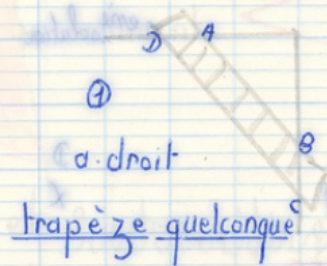 D A
①
B
a. droit
trapèze quelconque